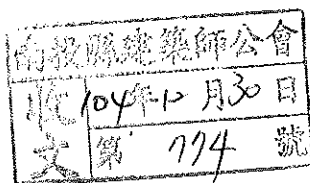 南投縣建築師公會
收文
104年10月30日
第774號